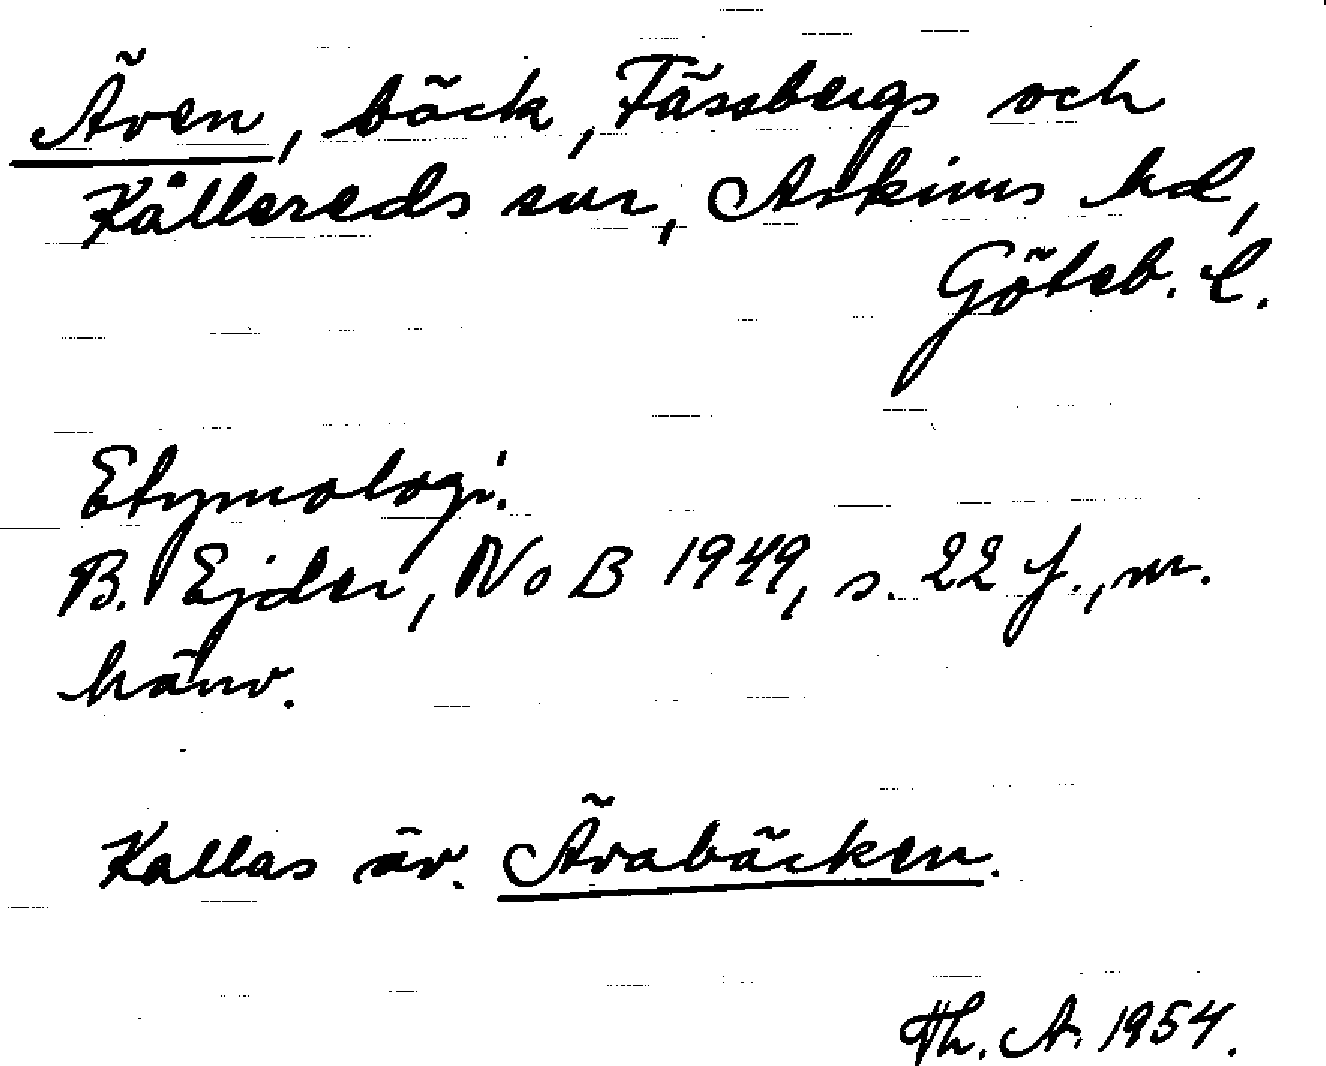 Även, bäck, Fässbergs och
Kållereds snr, Askims hd,
Göteb. l.
Etymologi.
B. Ejder, NoB 1949, s. 22 f., m.
hänv.
Kallas äv. Ävabäcken.
Th. A. 1954.